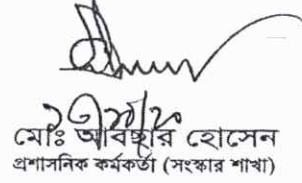 মোঃ আবছার হোসেন
প্রশাসনিক কর্মকর্তা (সংস্কার শাখা)